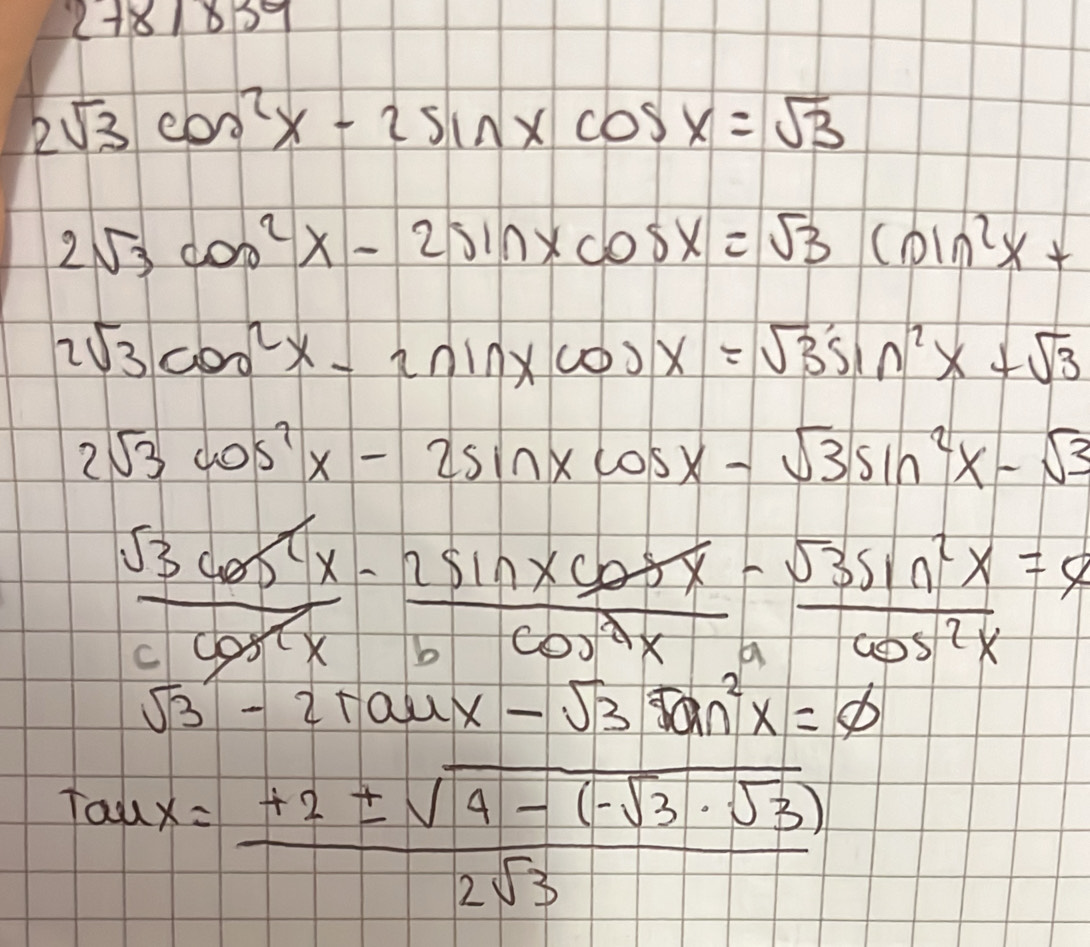 278 / 839
2√3 cos²x - 2 sinx cosx = √3
2√3 cos²x - 2sinxcosx = √3 (sin²x +
2√3 cos²x - 2sinx cosx = √3sin²x + √3
2√3 cos²x - 2sinx cosx - √3sin²x - √3
√3 cos²x/cos²x - 2sinxcosx/cos²x - √3sin²x/cos²x = ∅
c b a
√3 - 2Tanx - √3 Tan²x = ∅
Tanx = +2 ± √4 - (-√3 · √3)/2√3